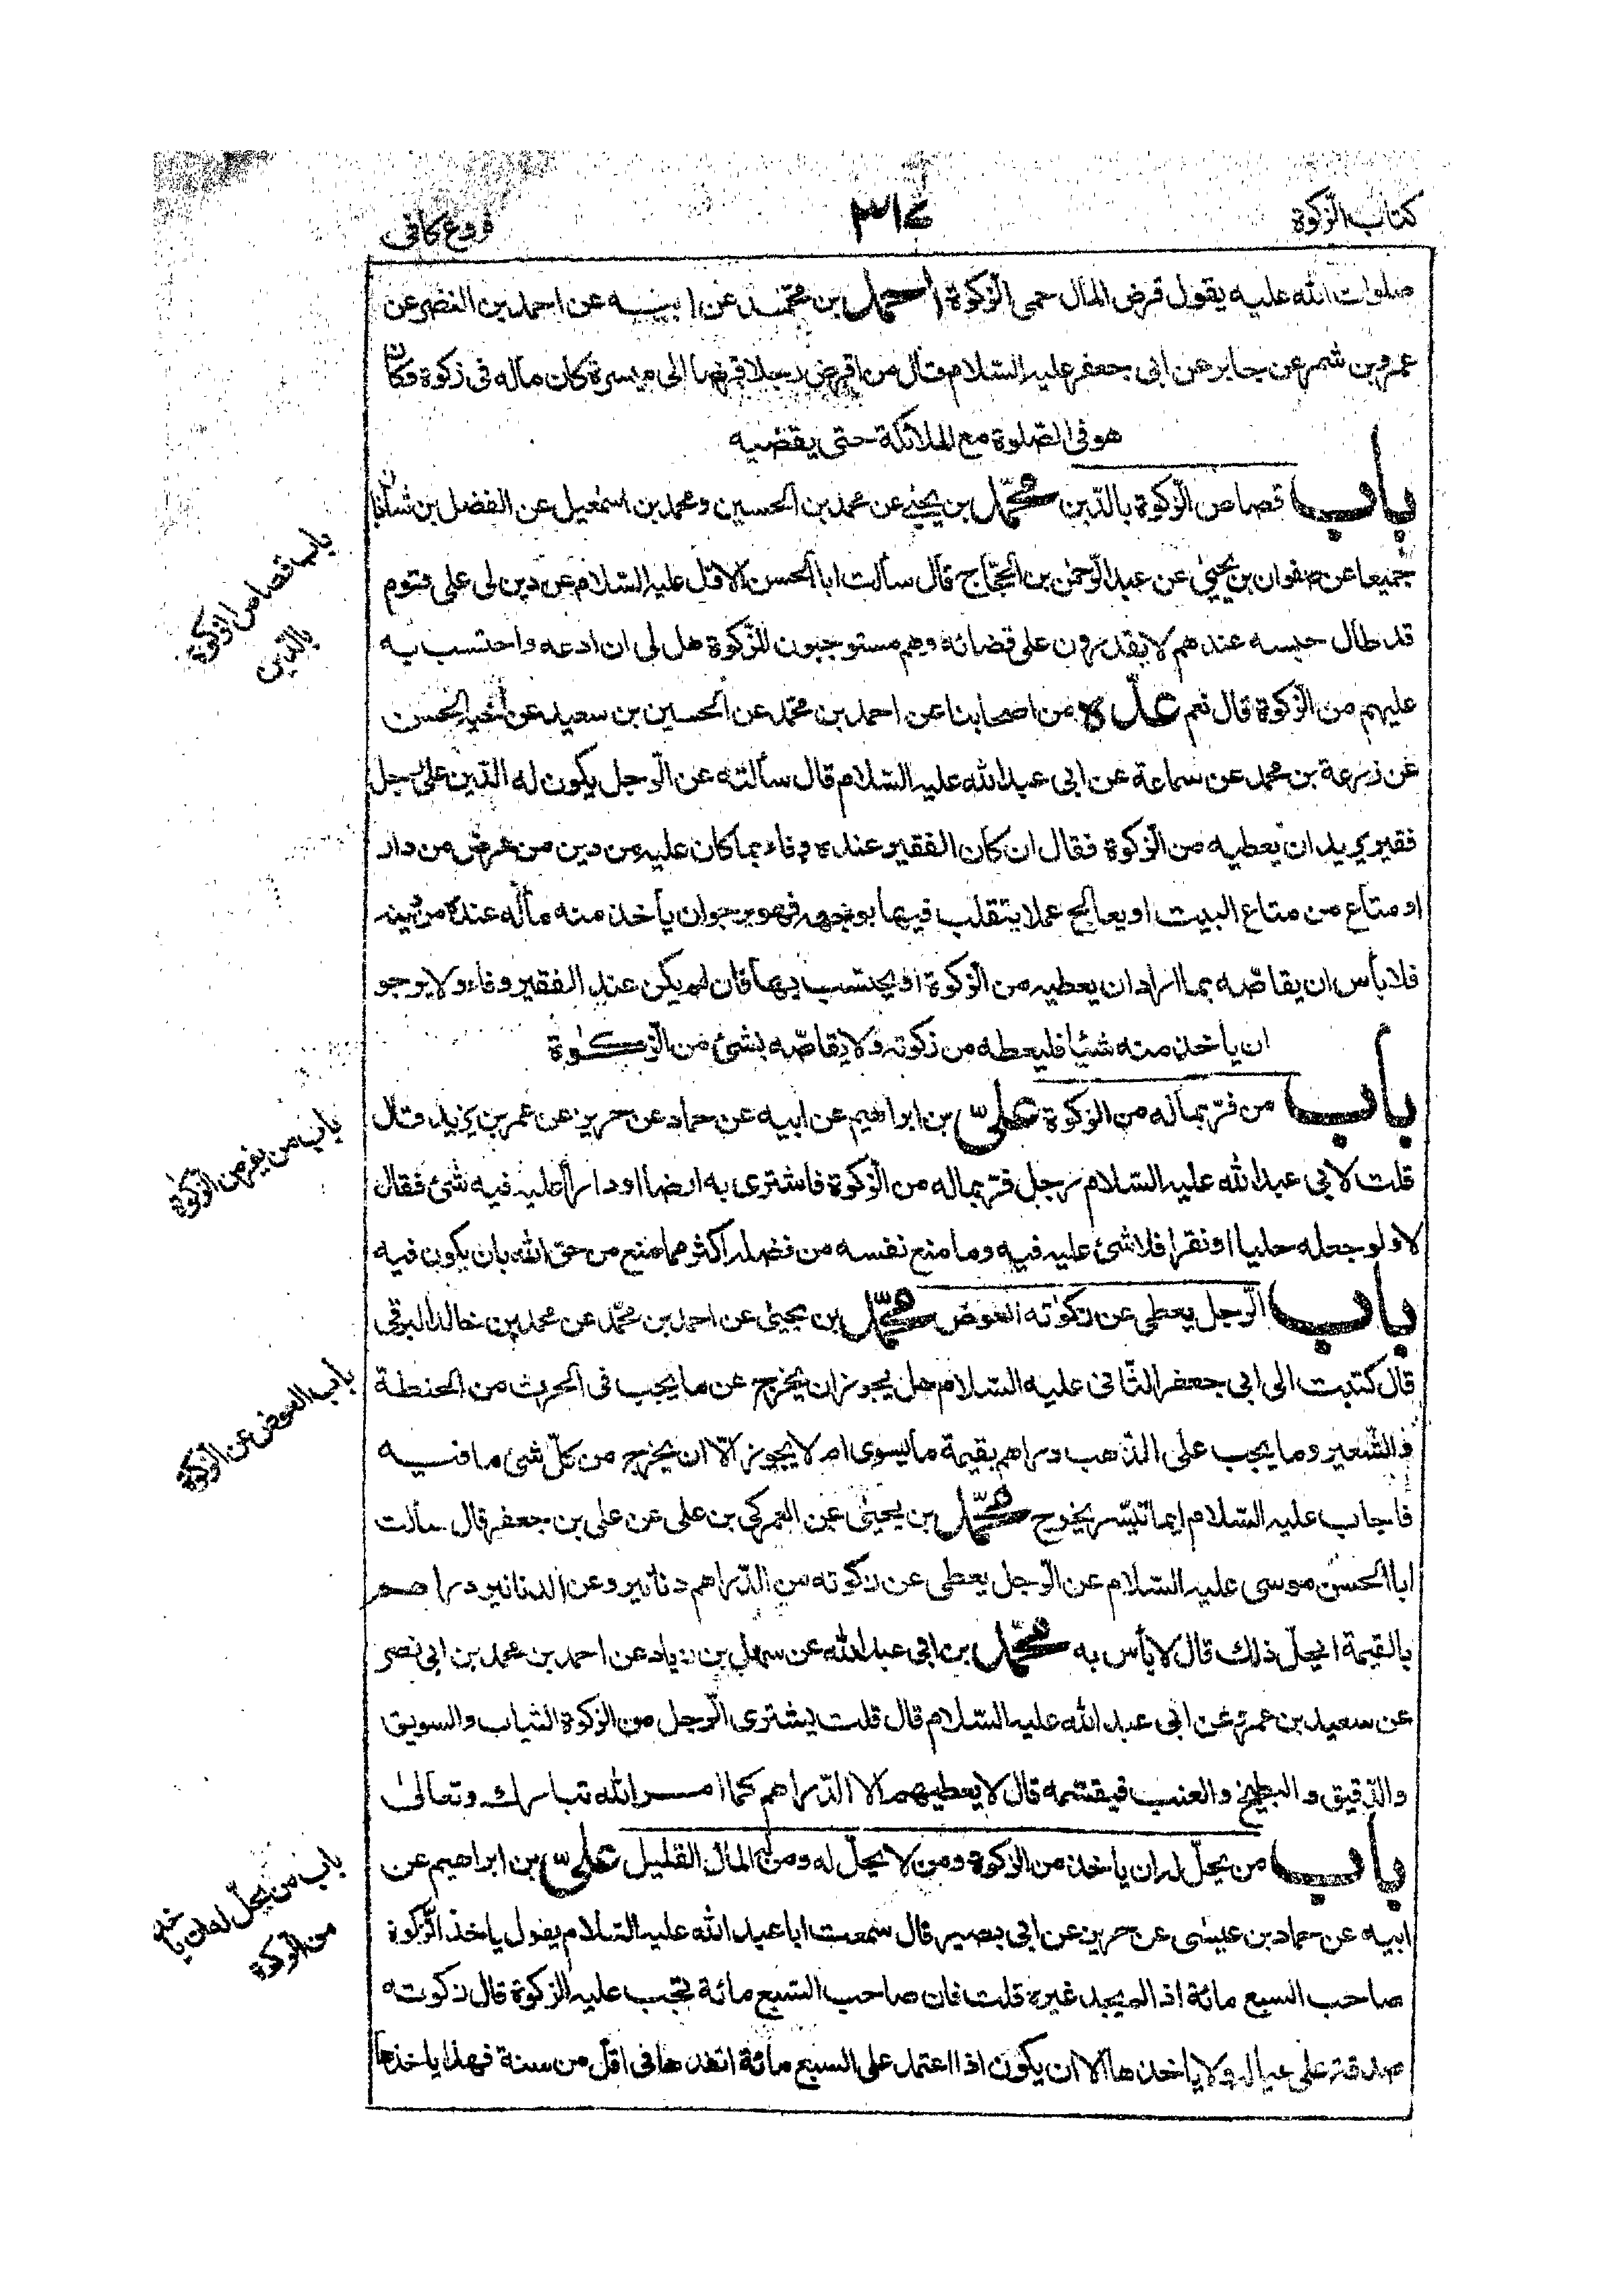 كتاب الزكوة
٣١٤
فروع كافى
صلوات الله عليه يقول قرض المال حمى الزكوة احمد بن محمد عن ابيه عن احمد بن النضر عن
عمرو بن شمر عن جابر عن ابى جعفر عليه السلام قال من اقرض رجلا قرضا الى ميسرة كان ماله فى زكوة وكان
هو فى الصلوة مع الملائكة حتى يقضيه
باب قصاص الزكوة بالدين محمد بن يحيى عن محمد بن الحسين ومحمد بن اسمعيل عن الفضل بن شاذان
جميعا عن صفوان بن يحيى عن عبد الرحمن بن الحجاج قال سألت ابا الحسن الاول عليه السلام عن دين لى على قوم
قد طال حبسه عندهم لا يقدرون على قضائه وهم مستوجبون للزكوة هل لى ان ادعه واحتسب به
عليهم من الزكوة قال نعم عدة من اصحابنا عن احمد بن محمد عن الحسين بن سعيد عن اخيه الحسن
عن زرعة بن محمد عن سماعة عن ابى عبد الله عليه السلام قال سألته عن الرجل يكون له الدين على رجل
فقير يريد ان يعطيه من الزكوة فقال ان كان الفقير عنده وفاء بما كان عليه من دين من عرض من دار
او متاع من متاع البيت او يعالج عملا يتقلب فيها بوجهه فهو يرجو ان يأخذ منه ماله عنده من دينه
فلا بأس ان يقاصه بما اراد ان يعطيه من الزكوة او يحتسب بها فان لم يكن عند الفقير وفاء ولا يرجو
ان يأخذ منه شيئا فليعطه من زكوته ولا يقاصه بشئ من الزكوة
باب من فر بماله من الزكوة على بن ابراهيم عن ابيه عن حماد عن حريز عن عمر بن يزيد قال
قلت لابى عبد الله عليه السلام رجل فر بماله من الزكوة فاشترى به ارضا او دارا أعليه فيه شئ فقال
لا ولو جعله حليا او نقرا فلا شئ عليه فيه وما منع نفسه من فضله اكثر مما منع من حق الله بان يكون فيه
باب الرجل يعطى عن زكوته العوض محمد بن يحيى عن احمد بن محمد عن محمد بن خالد البرقى
قال كتبت الى ابى جعفر الثانى عليه السلام هل يجوز ان يخرج عن ما يجب فى الحرث من الحنطة
والشعير وما يجب على الذهب دراهم بقيمة ما يسوى ام لا يجوز الا ان يخرج من كل شئ ما فيه
فاجاب عليه السلام ايما تيسر يخرج محمد بن يحيى عن العمركى بن على عن على بن جعفر قال سألت
ابا الحسن موسى عليه السلام عن الرجل يعطى عن زكوته من الدراهم دنانير وعن الدنانير دراهم
بالقيمة ايحل ذلك قال لا بأس به محمد بن ابى عبد الله عن سهل بن زياد عن احمد بن محمد بن ابى نصر
عن سعيد بن عمرو عن ابى عبد الله عليه السلام قال قلت يشترى الرجل من الزكوة الثياب والسويق
والدقيق والبطيخ والعنب فيقسمه قال لا يعطيهم الا الدراهم كما امر الله تبارك وتعالى
باب من يحل له ان ياخذ من الزكوة ومن لا يحل له ومن له المال القليل على بن ابراهيم عن
ابيه عن حماد بن عيسى عن حريز عن ابى بصير قال سمعت ابا عبد الله عليه السلام يقول ياخذ الزكوة
صاحب السبع مائة اذا لم يجد غيره قلت فان صاحب السبع مائة تجب عليه الزكوة قال زكوته
صدقة على عياله ولا ياخذها الا ان يكون اذا اعتمد على السبع مائة انفدها فى اقل من سنة فهذا ياخذها
باب قصاص الزكوة
بالدين
باب من يفر من الزكوة
باب العوض عن الزكوة
باب من يحل له ان ياخذ
من الزكوة